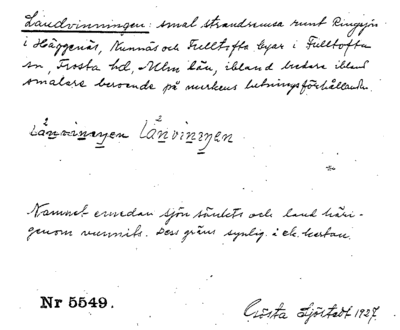 Landvinningen: smal strandremsa runt Ringsjön
i Häggenäs, Nunnäs och Fulltofta byar i Fulltofta
sn, Frosta hd, Mlm län, ibland bredare ibland
smalare beroende på markens lutningsförhållanden.
Lånvinengen lånviningen
Namnet emedan sjön sänkts och land häri-
genom vunnits. Dess gräns synlig å ek. kartan.
Nr 5549.
Gösta Sjöstedt 1927.